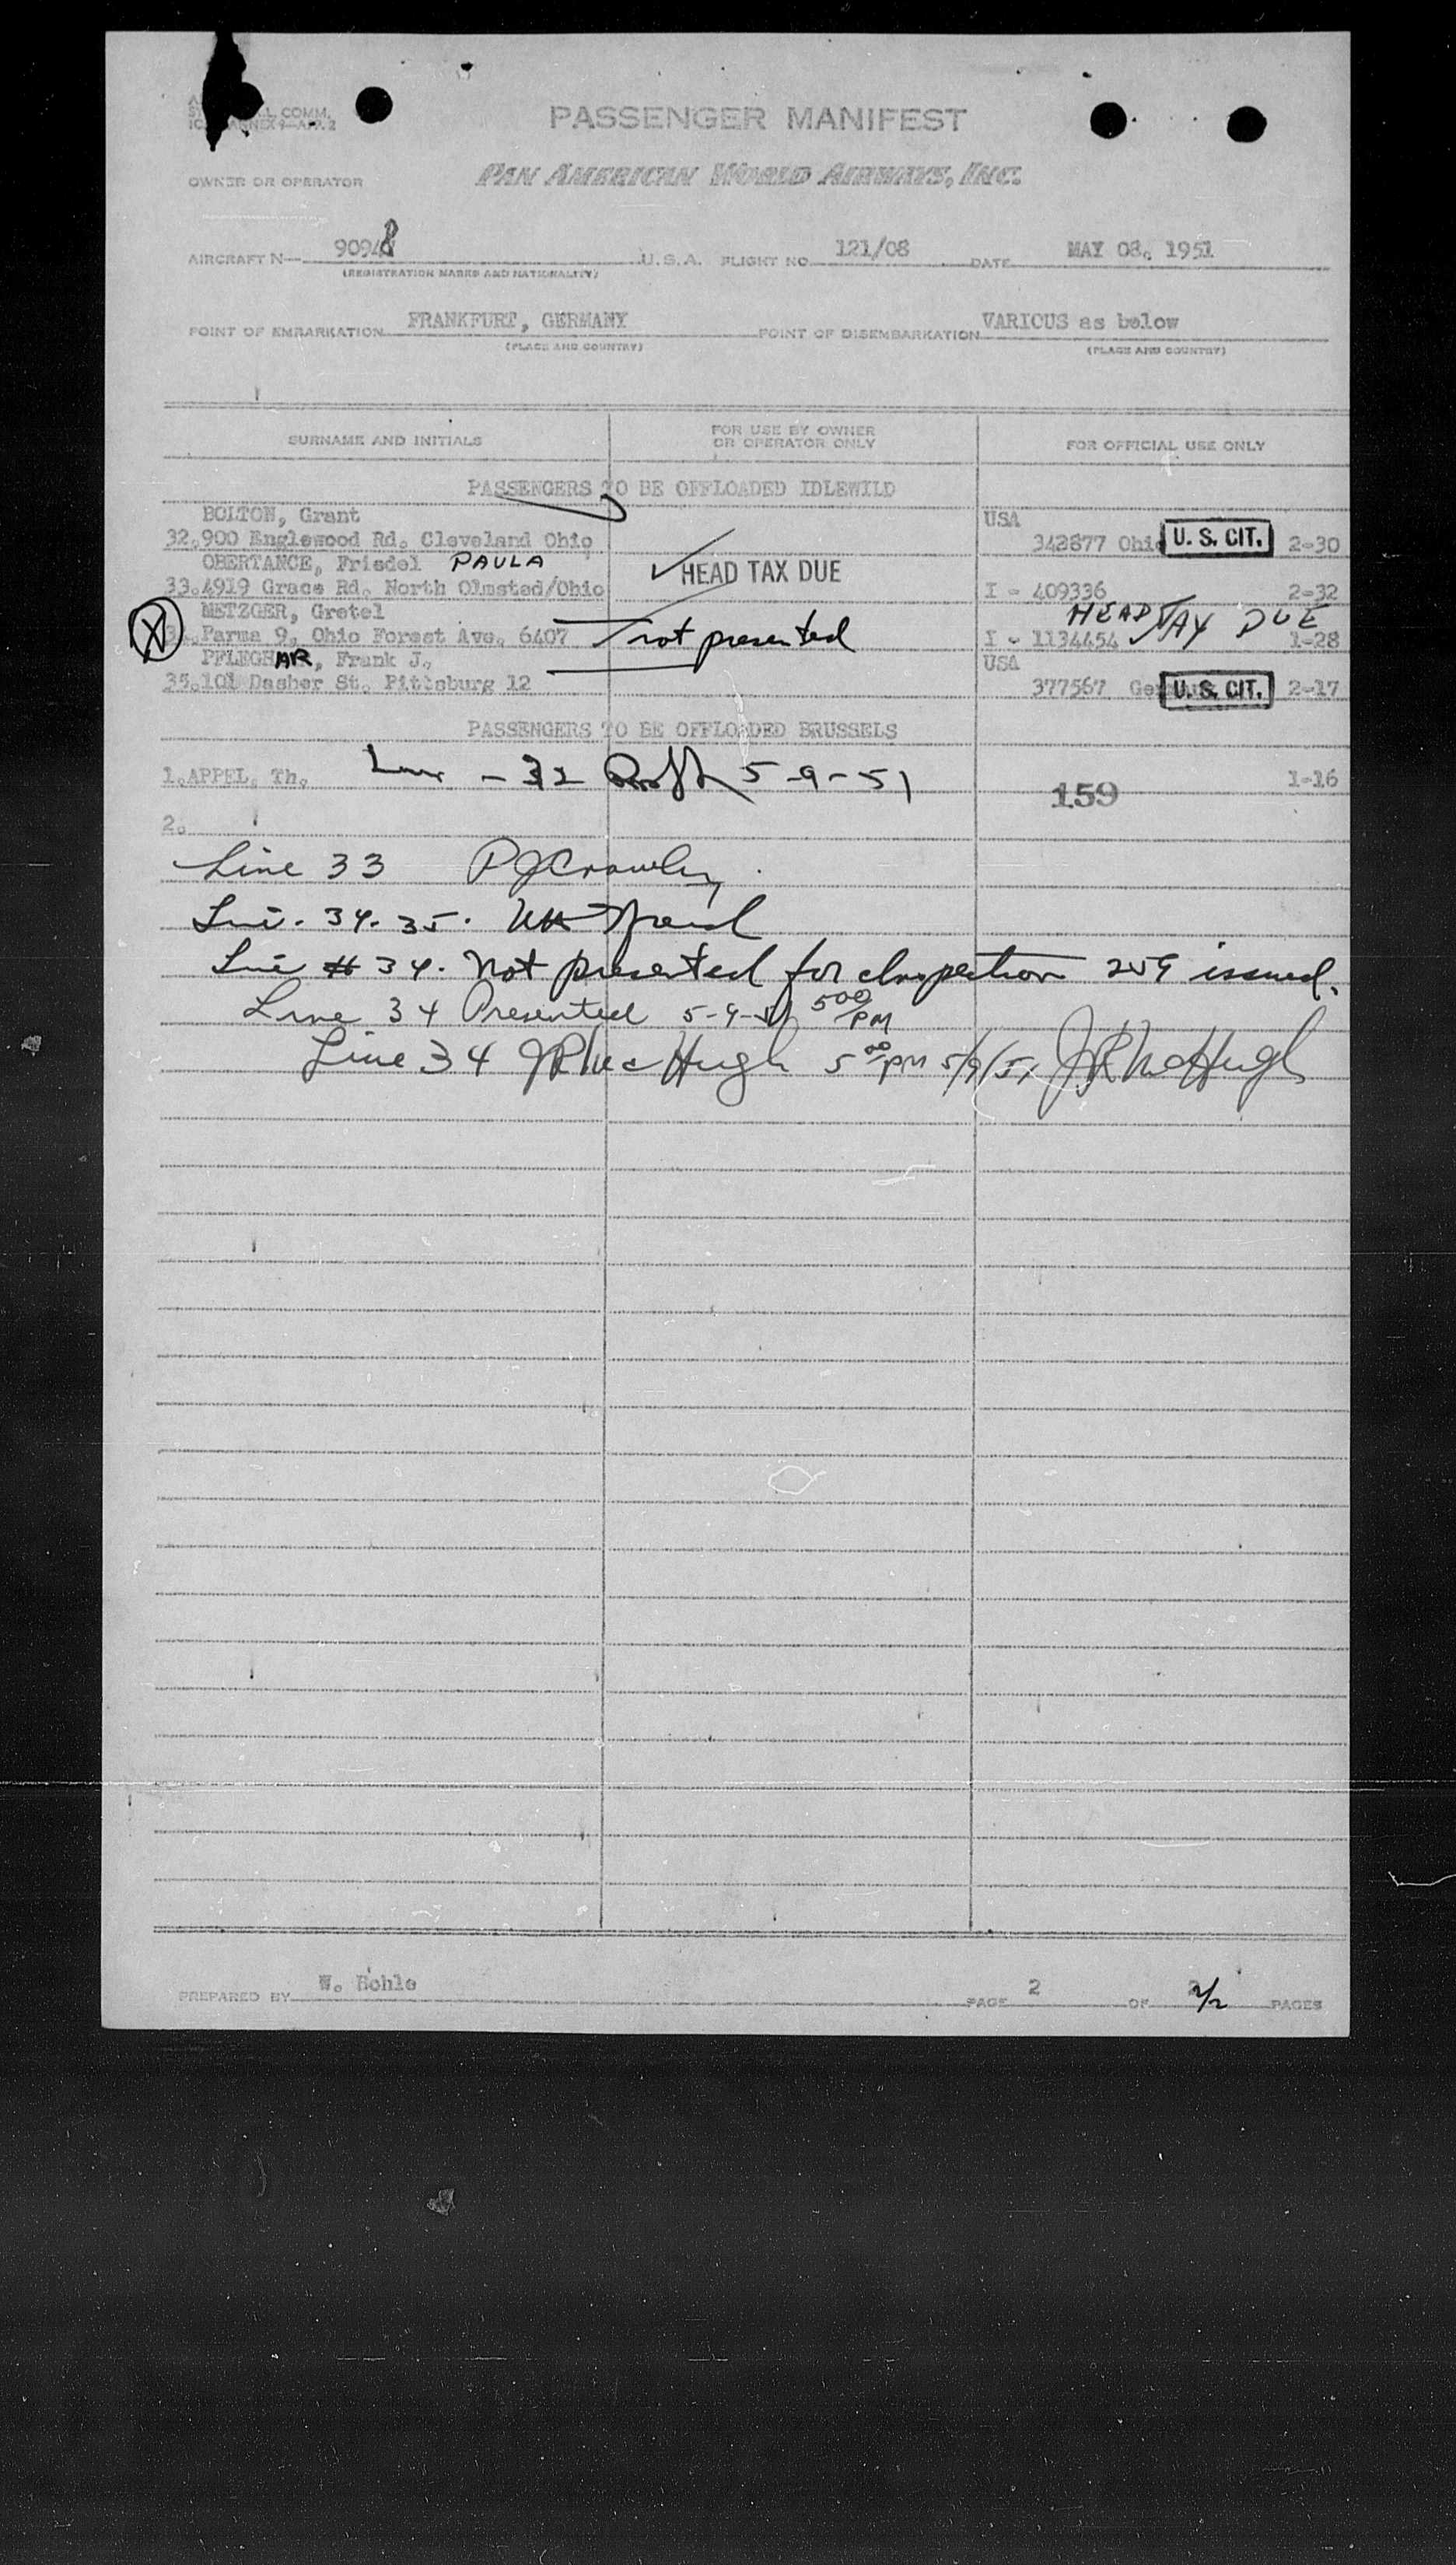 COMM.
ANNEX 9—APP. 2
PASSENGER MANIFEST
OWNER OR OPERATOR
PAN AMERICAN WORLD AIRWAYS, INC.
AIRCRAFT N— 90948 U.S.A. FLIGHT NO. 121/08 DATE MAY 08. 1951
(REGISTRATION MARKS AND NATIONALITY)
POINT OF EMBARKATION FRANKFURT, GERMANY POINT OF DISEMBARKATION VARIOUS as below
(PLACE AND COUNTRY) (PLACE AND COUNTRY)
SURNAME AND INITIALS FOR USE BY OWNER OR OPERATOR ONLY FOR OFFICIAL USE ONLY
PASSENGERS TO BE OFFLOADED IDLEWILD
BOLTON, Grant USA
32.900 Englewood Rd. Cleveland Ohio 342877 Ohio U. S. CIT. 2-30
OBERTANCE, Friedel PAULA
33.4919 Grace Rd. North Olmsted/Ohio HEAD TAX DUE I - 409336 2-32
METZGER, Gretel HEAD TAX DUE
34.Parma 9. Ohio Forest Ave. 6407 not presented I - 1134454 1-28
PFLEGHAR, Frank J., USA
35.101 Dasher St. Pittsburg 12 377567 U. S. CIT. 2-17
PASSENGERS TO BE OFFLOADED BRUSSELS
1.APPEL, Th. Line - 32 5-9-51 159 1-16
2.
Line 33 PJCrowley
Line. 34. 35.
Line # 34. Not presented for inspection 259 issued.
Line 34 Presented 5-9-51 5 00 PM
Line 34 JR McHugh 5 00 PM 5/9/51 JR McHugh
PREPARED BY W. Hohle PAGE 2 OF 2/2 PAGES